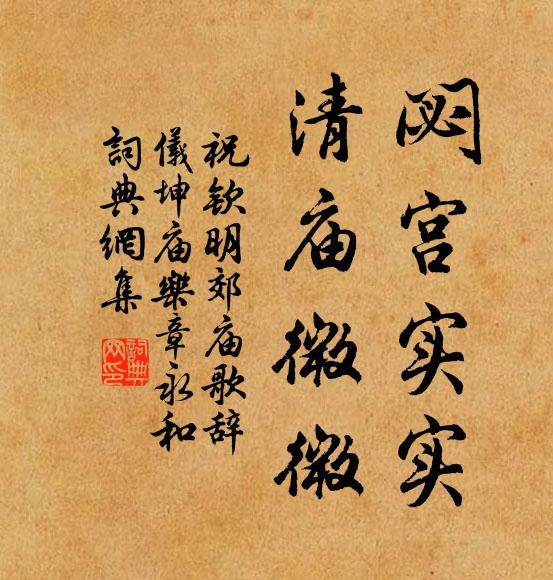 閟宫实实
清庙微微
祝钦明郊庙歌辞
儀坤庙樂章永和
詞典網集
詞典网印